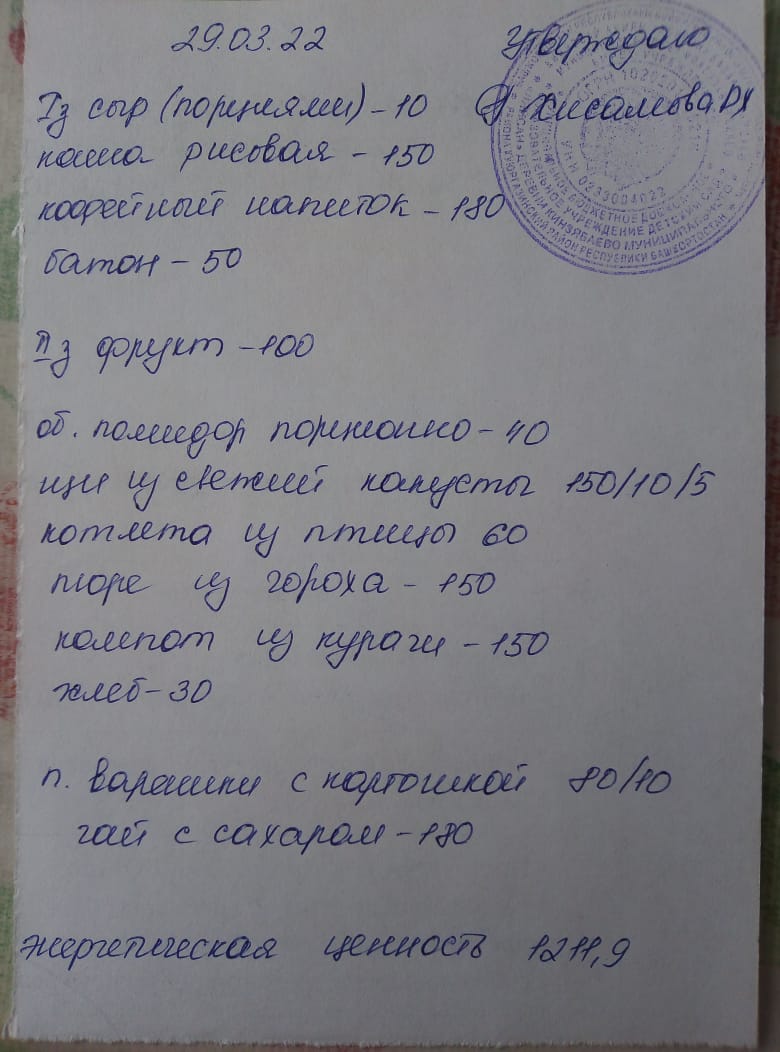 29.03.22
Утверждаю
Iз сыр (порциями) - 10
Хисамова РХ
каша рисовая - 150
кофейный напиток - 180
батон - 50
IIз фрукт - 100
об. помидор порционно - 40
щи из свежий капусты 150/10/5
котлета из птицы 60
пюре из гороха - 150
компот из кураги - 150
хлеб - 30
п. варешки с картошкой 80/10
чай с сахаром - 180
энергетическая ценность 1211,9
ДЕРЕВНИ КИНЗЯБАЕВО МУНИЦИПАЛЬНОГО
РАЙОН РЕСПУБЛИКИ БАШКОРТОСТАН
УЧРЕЖДЕНИЕ ДЕТСКИЙ САД